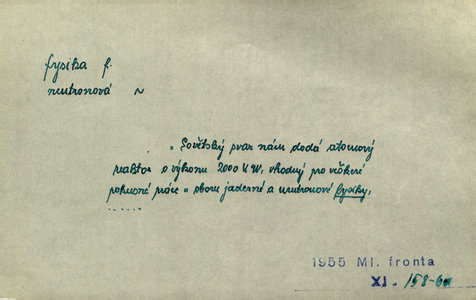 fysika f.
neutronová ~
„Sovětský svaz nám dodá atomový
reaktor o výkonu 2000 KW, vhodný pro veškeré
pokusné práce v oboru jaderné a neutronové fysiky.
......
1955 Ml. fronta
XI. 158-6